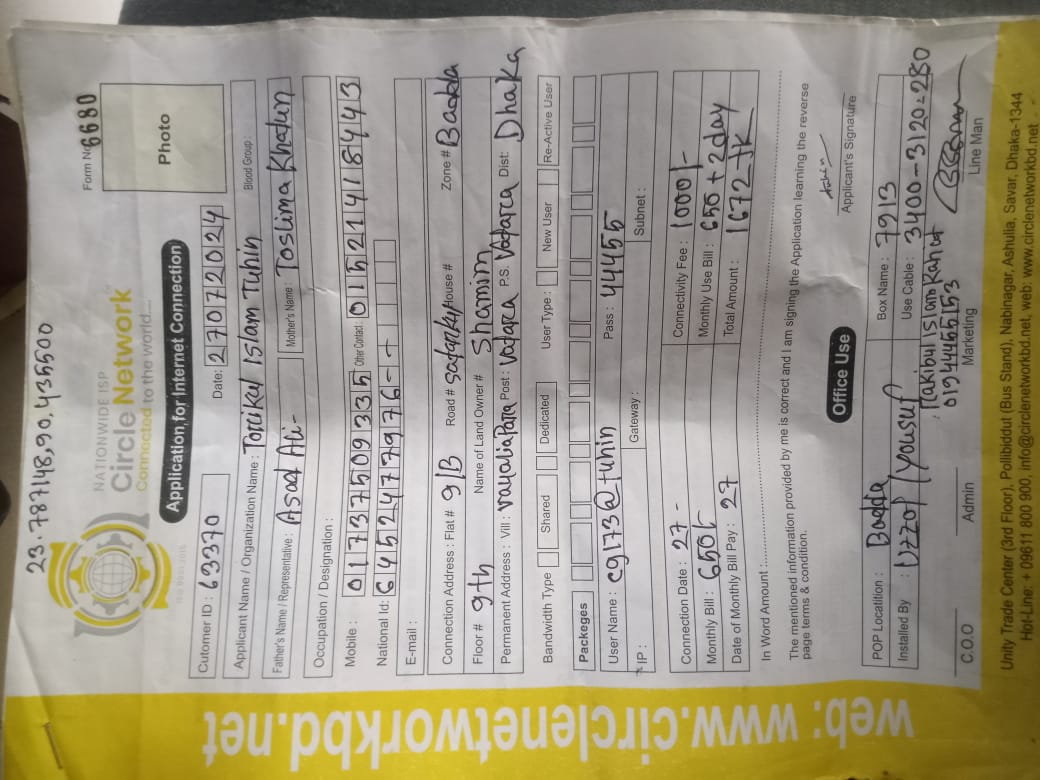 23.787148,90.435500
NATIONWIDE ISP
Circle Network
Connected to the world...
Form No 6680
Application for Internet Connection
Photo
Cutomer ID : 63370
Date: 27072024
Applicant Name / Organization Name : Torikul Islam Tuhin
Blood Group :
Father's Name / Representative : Asad Ali-
Mother's Name : Toslima Khatun
Occupation / Designation :
Mobile : 01737509335
Other Contact: 01521418443
National Id: 6452477976--
E-mail :
Connection Address : Flat # 9/B Road # House # Zone # Badda
Floor # 9th Name of Land Owner # Shamim
Permanent Address : Vill : Post : Vatara P.S. Vatara Dist: Dhaka
Bandwidth Type Shared Dedicated User Type : New User Re-Active User
Packeges
User Name : cg173@tuhin Pass : 44455
IP : Gateway : Subnet :
Connection Date : 27 - Connectivity Fee : 1000/-
Monthly Bill : 650/- Monthly Use Bill : 650 + 2day
Date of Monthly Bill Pay : 27 Total Amount : 1672-TK
In Word Amount :
The mentioned information provided by me is correct and I am signing the Application learning the reverse
page terms & condition.
Applicant's Signature
Office Use
POP Localtition : Badda Box Name : 7913
Installed By : Uzzol / Yousuf Use Cable : 3400-3120=280
Rakibul Islam Rahat
01944455153
C.O.O Admin Marketing Line Man
Unity Trade Center (3rd Floor), Polibiddut (Bus Stand), Nabinagar, Ashulia, Savar, Dhaka-1344
Hot-Line: + 09611 800 900, info@circlenetworkbd.net, web: www.circlenetworkbd.net
web: www.circlenetworkbd.net